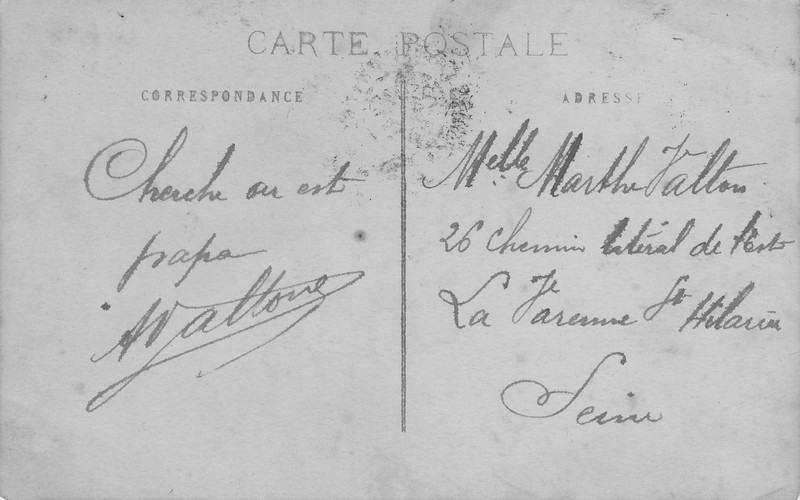 CARTE POSTALE
CORRESPONDANCE
Cherche ou est
papa
AValton
ADRESSE
Melle Marthe Valton
26 chemin latéral de l'Est
La Varenne St Hilaire
Seine